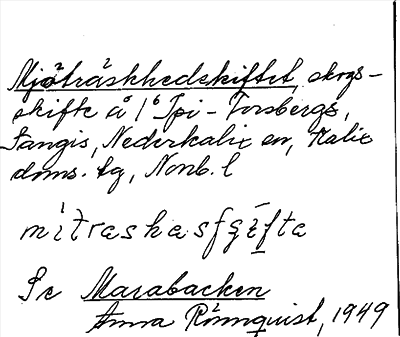 Mjöträskhedskiftet, skogs-
skifte å 1⁶ Ipi-Forsbergs,
Sangis, Nederkalix sn, Kalix
doms. tg, Norrb. l
mìtraskasfgífta
Se Marabacken
Anna Rönnquist, 1949